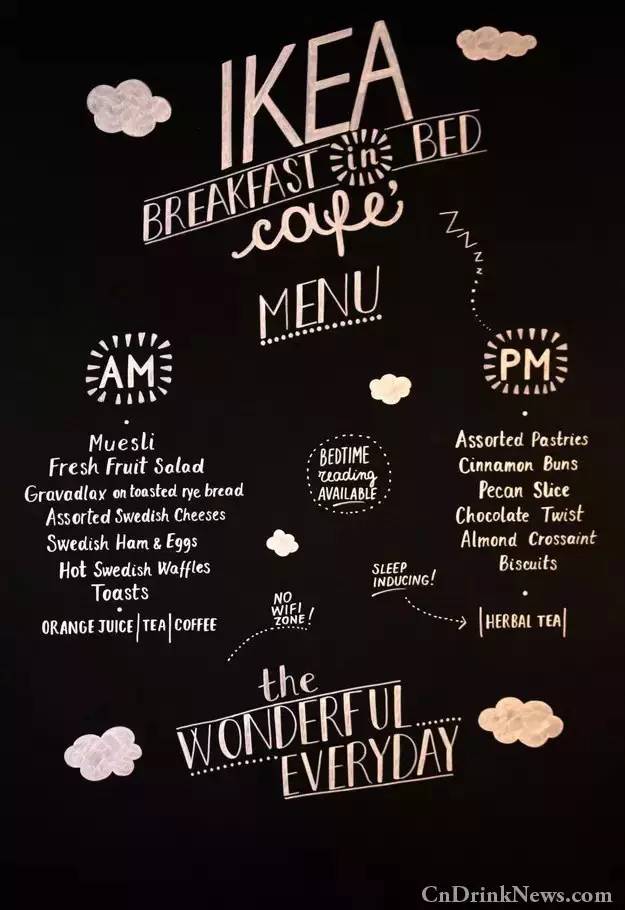 IKEA
BREAKFAST in BED
café
MENU
zzzzz
AM
Muesli
Fresh Fruit Salad
Gravadlax on toasted rye bread
Assorted Swedish Cheeses
Swedish Ham & Eggs
Hot Swedish Waffles
Toasts
ORANGE JUICE|TEA|COFFEE
BEDTIME
reading
AVAILABLE
NO
WIFI
ZONE!
SLEEP
INDUCING!
PM
Assorted Pastries
Cinnamon Buns
Pecan Slice
Chocolate Twist
Almond Crossaint
Biscuits
|HERBAL TEA|
the
WONDERFUL
EVERYDAY
CnDrinkNews.com